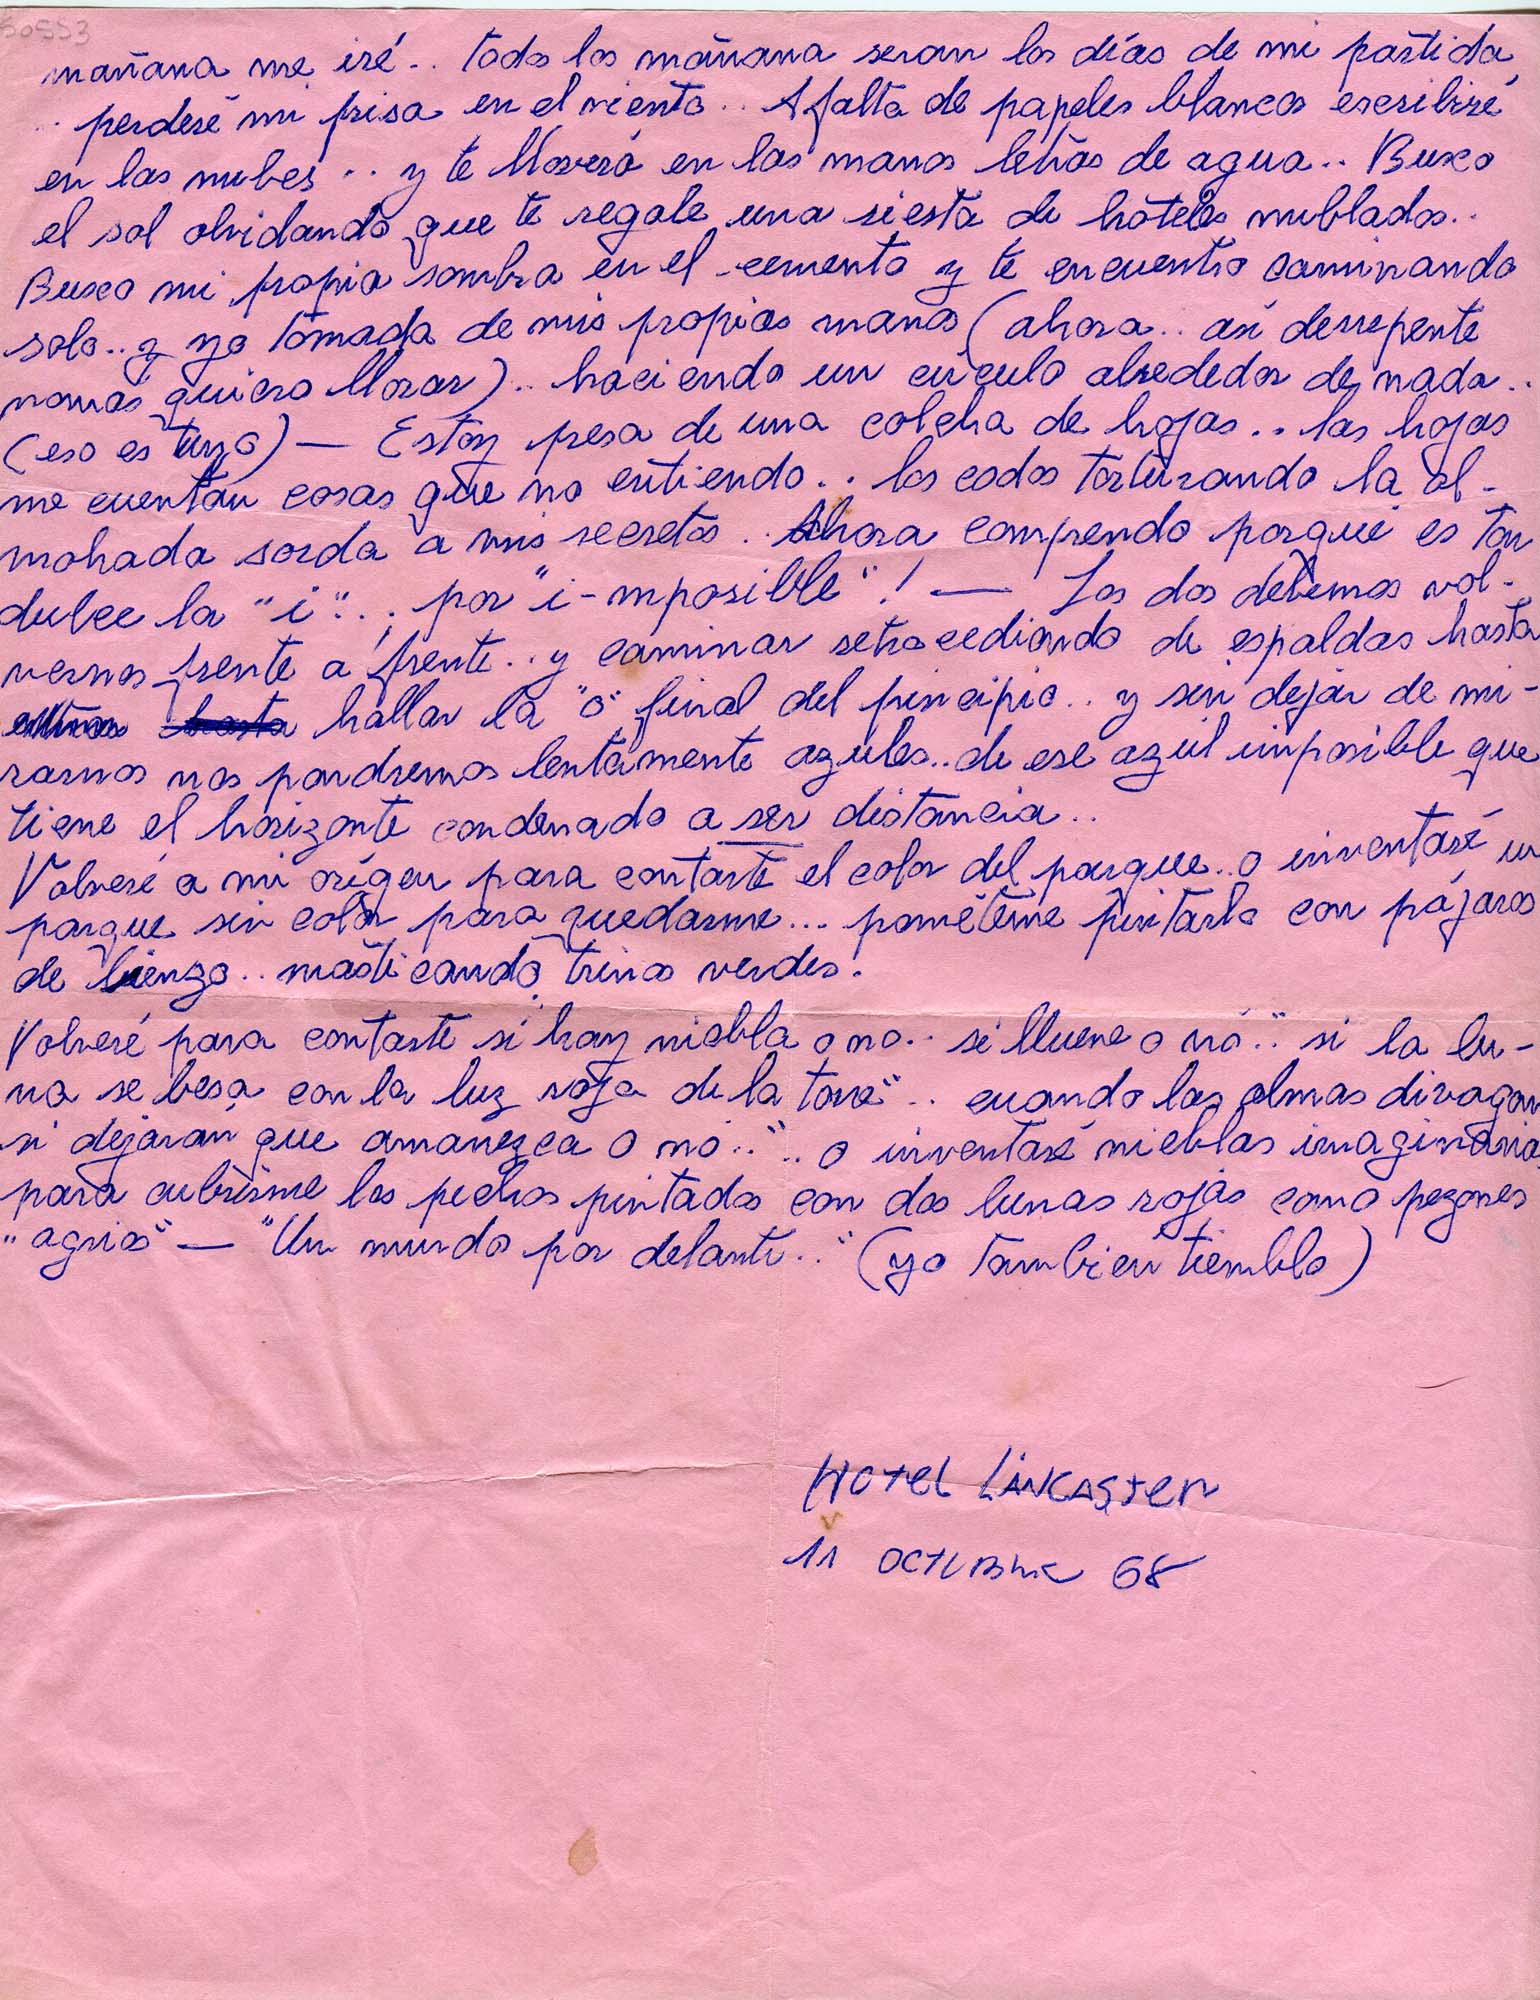 50553
mañana me iré.. todos los mañana seran los días de mi partida
.. perderé mi prisa en el viento.. A falta de papeles blancos escribiré
en las nubes.. y te lloverá en las manos letras de agua.. Busco
el sol olvidando que te regale una siesta de hoteles nublados..
Busco mi propia sombra en el cemento y te encuentro caminando
solo.. y yo tomada de mis propias manos (ahora.. así derrepente
nomás quiero llorar).. haciendo un círculo alrededor de nada..
(eso es tuyo) — Estoy presa de una colcha de hojas.. las hojas
me cuentan cosas que no entiendo.. los codos torturando la al-
mohada sorda a mis secretos.. Ahora comprendo porqué es tan
dulce la "i".. por "i-mposible"! — Los dos debemos vol-
vernos frente a frente.. y caminar retrocediendo de espaldas hasta
hallar la "o" final del principio.. y sin dejar de mi-
rarnos nos pondremos lentamente azules.. de ese azul imposible que
tiene el horizonte condenado a ser distancia..
Volveré a mi orígen para contarte el color del parque.. o inventaré un
parque sin color para quedarme... prométeme pintarlo con pájaros
de lienzo.. masticando trinos verdes.
Volveré para contarte si hay niebla o no.. si llueve o nó.." si la lu-
na se besa con la luz roja de la torre".. cuando las almas divagan
si dejaran que amanezca o nó..".. o inventaré nieblas imaginaria
para cubrirme los pechos pintados con dos lunas rojas como pezones
"agrios" — "Un mundo por delante.." (yo tambien tiemblo)
HOTEL LANCASTER
11 OCTUBRE 68